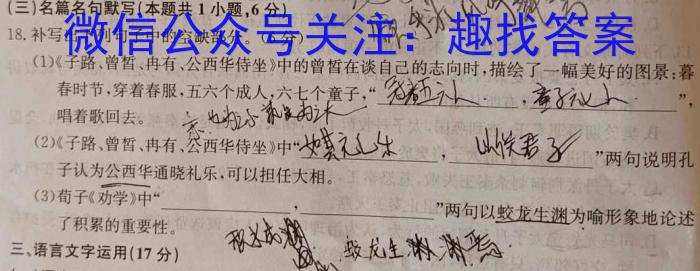 (三)名篇名句默写(本题共1小题,6分)
微信公众号关注:趣找答案
18.补写出下列句子中的空缺部分。(6分)
(1)《子路、曾皙、冉有、公西华侍坐》中的曾皙在谈自己的志向时,描绘了一幅美好的图景:暮
春时节,穿着春服,五六个成人,六七个童子,“冠者五六人,童子六七人”,
唱着歌回去。
(2)《子路、曾皙、冉有、公西华侍坐》中“如其礼乐,以俟君子”两句说明孔
子认为公西华通晓礼乐,可以担任大相。
(3)荀子《劝学》中“,”两句以蛟龙生渊为喻形象地论述
了积累的重要性。
积水成渊 蛟龙生
三、语言文字运用(17分)